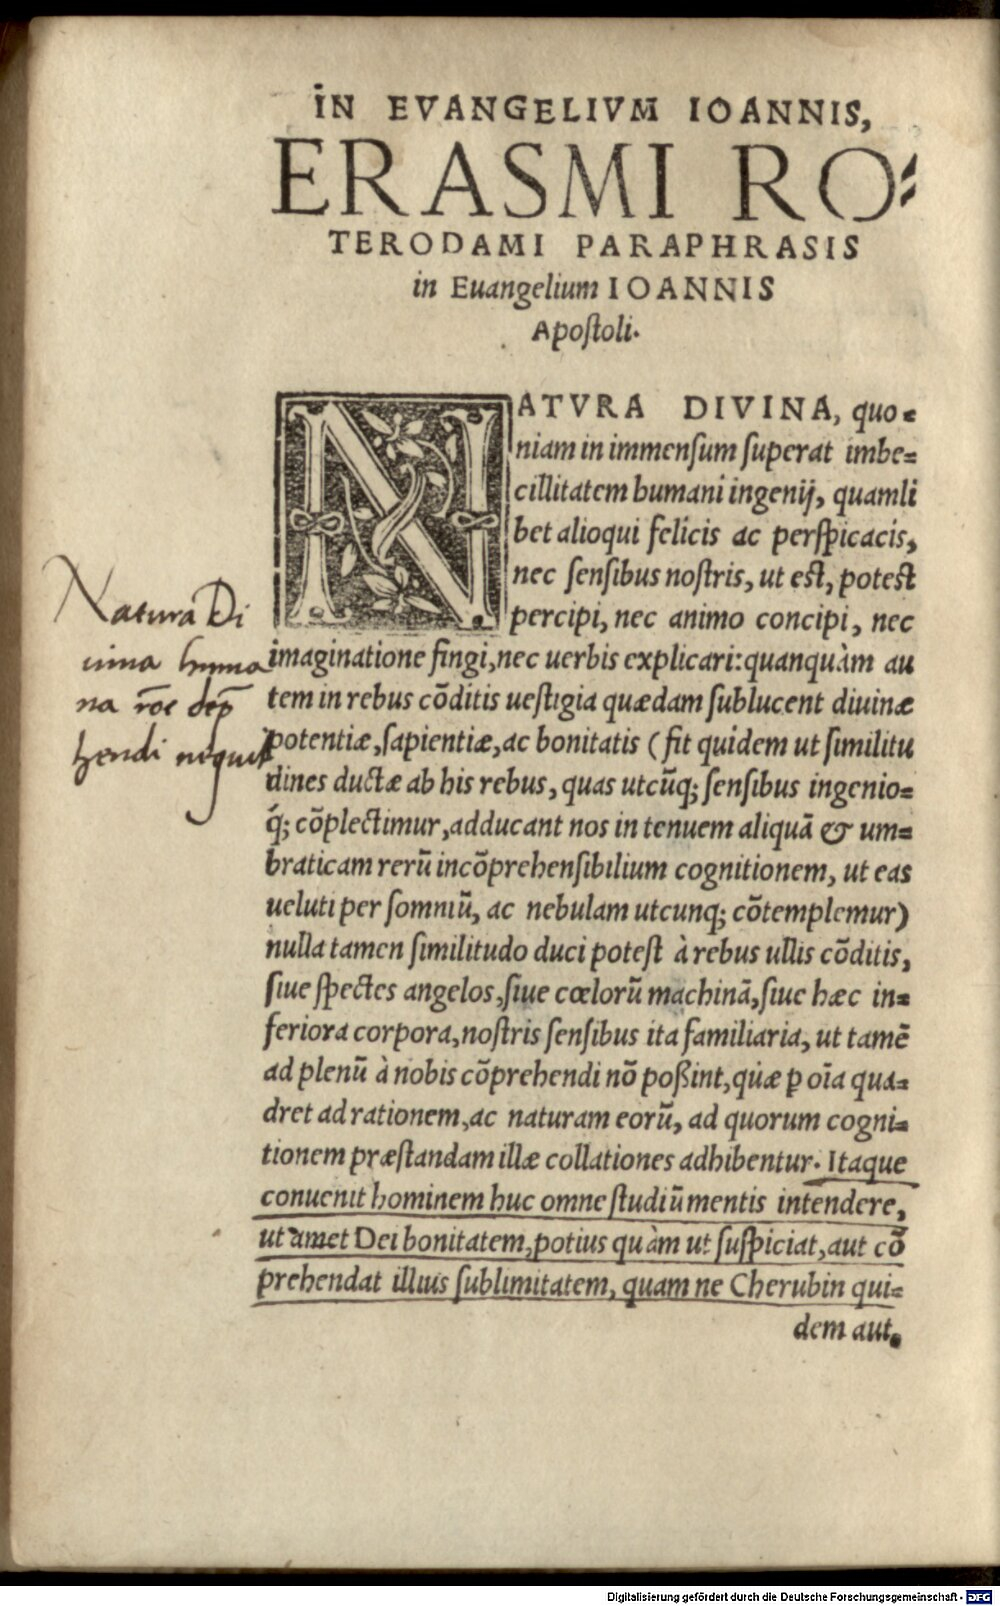 IN EVANGELIVM IOANNIS,
ERASMI RO⸗
TERODAMI PARAPHRASIS
in Euangelium IOANNIS
Apoſtoli.
NATVRA DIVINA, quo⸗
niam in immenſum ſuperat imbe⸗
cillitatem humani ingenij, quamli
bet alioqui felicis ac perſpicacis,
nec ſenſibus noſtris, ut eſt, poteſt
percipi, nec animo concipi, nec
imaginatione fingi, nec uerbis explicari: quanquàm au
tem in rebus cõditis ueſtigia quædam ſublucent diuinæ
potentiæ, ſapientiæ, ac bonitatis (fit quidem ut ſimilitu
dines ductæ ab his rebus, quas utcũq; ſenſibus ingenio⸗
q́; cõplectimur, adducant nos in tenuem aliquã & um⸗
braticam rerũ incõprehenſibilium cognitionem, ut eas
ueluti per ſomniũ, ac nebulam utcunq; cõtemplemur)
nulla tamen ſimilitudo duci poteſt à rebus ullis cõditis,
ſiue ſpectes angelos, ſiue cœlorũ machinã, ſiue hæc in⸗
feriora corpora, noſtris ſenſibus ita familiaria, ut tamẽ
ad plenũ à nobis cõprehendi nõ poßint, quæ p oĩa qua⸗
dret ad rationem, ac naturam eorũ, ad quorum cogni⸗
tionem præſtandam illæ collationes adhibentur. Itaque
conuenit hominem huc omne ſtudiũ mentis intendere,
ut amet Dei bonitatem, potius quàm ut ſuſpiciat, aut cõ
prehendat illius ſublimitatem, quam ne Cherubin qui⸗
dem aut
Natura Di
uina huma
na rõe dep̃
hendi nequit
Digitalisierung gefördert durch die Deutsche Forschungsgemeinschaft - DFG